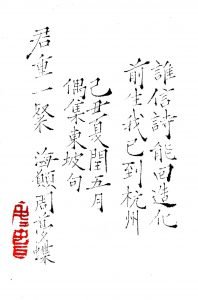 誰信詩能回造化
前生我已到杭州
己丑夏閏五月
偶集東坡句
君重一粲 海顛周夢蝶